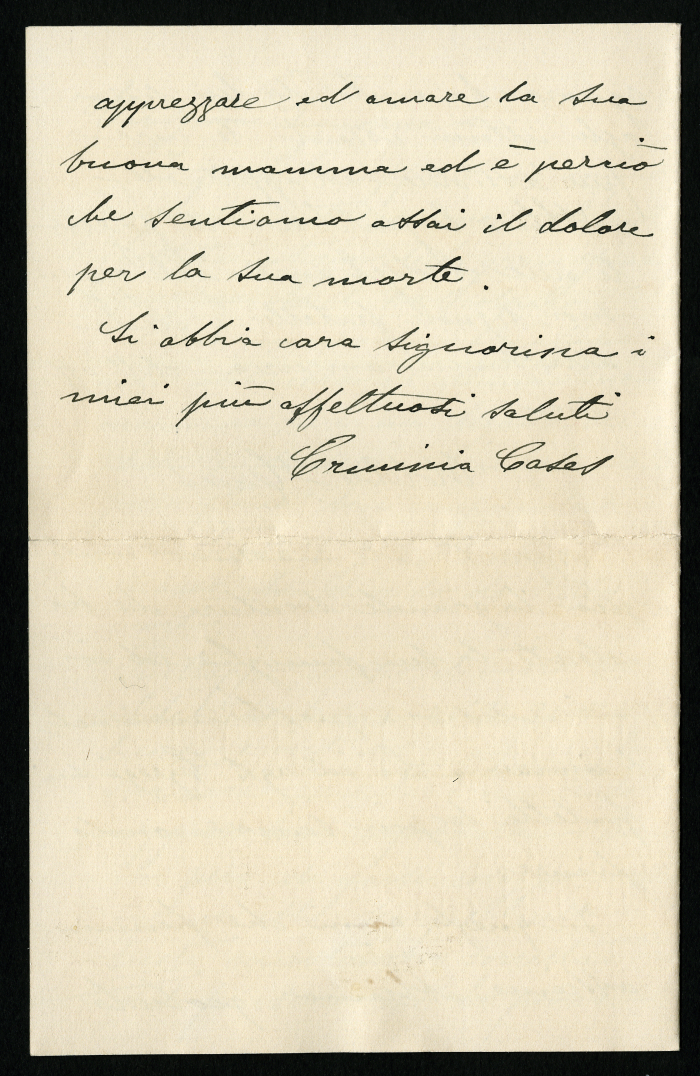 apprezzare ed amare la sua
buona mamma ed è perciò
che sentiamo assai il dolore
per la sua morte.
Si abbia cara signorina i
miei più affettuosi saluti
Erminia Cases